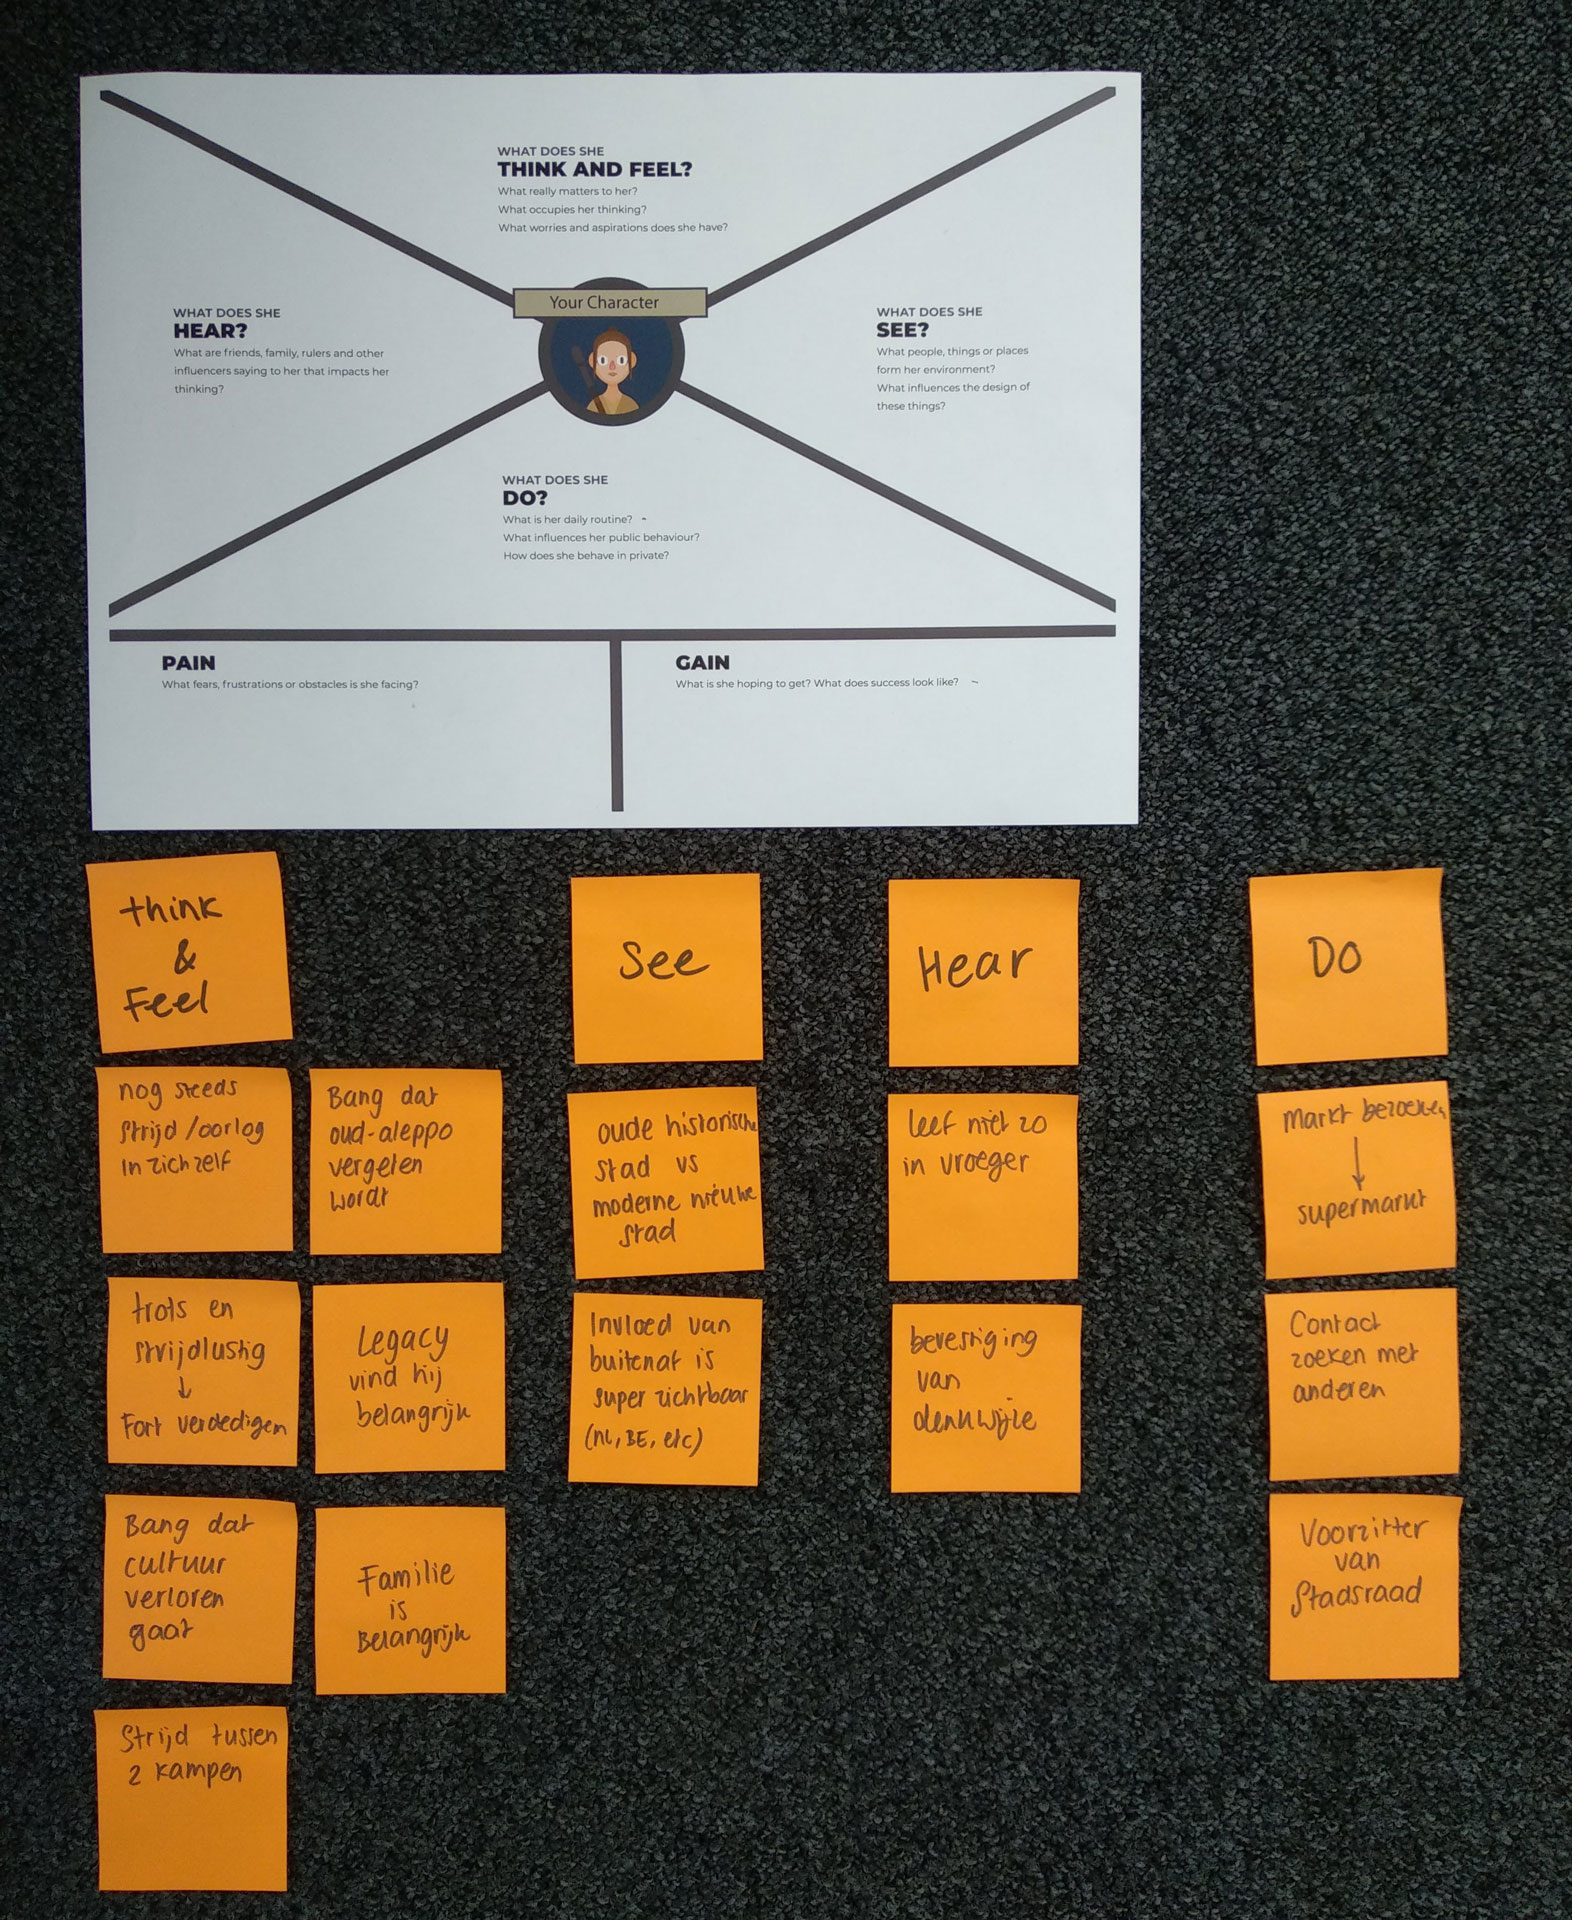 WHAT DOES SHE
THINK AND FEEL?
What really matters to her?
What occupies her thinking?
What worries and aspirations does she have?
Your Character
WHAT DOES SHE
HEAR?
What are friends, family, rulers and other
influencers saying to her that impacts her
thinking?
WHAT DOES SHE
SEE?
What people, things or places
form her environment?
What influences the design of
these things?
WHAT DOES SHE
DO?
What is her daily routine?
What influences her public behaviour?
How does she behave in private?
PAIN
What fears, frustrations or obstacles is she facing?
GAIN
What is she hoping to get? What does success look like?
think
&
Feel
nog steeds
strijd/oorlog
in zichzelf
Bang dat
oud-aleppo
vergeten
wordt
trots en
strijdlustig
↓
Fort verdedigen
Legacy
vind hij
belangrijk
Bang dat
cultuur
verloren
gaat
Familie
is
Belangrijk
Strijd tussen
2 kampen
See
oude historische
stad vs
moderne nieuwe
stad
Invloed van
buitenaf is
super zichtbaar
(NL, BE, etc)
Hear
leef niet zo
in vroeger
bevestiging
van
denkwijze
Do
Markt bezoeken
↓
supermarkt
Contact
zoeken met
anderen
Voorzitter
van
Stadsraad